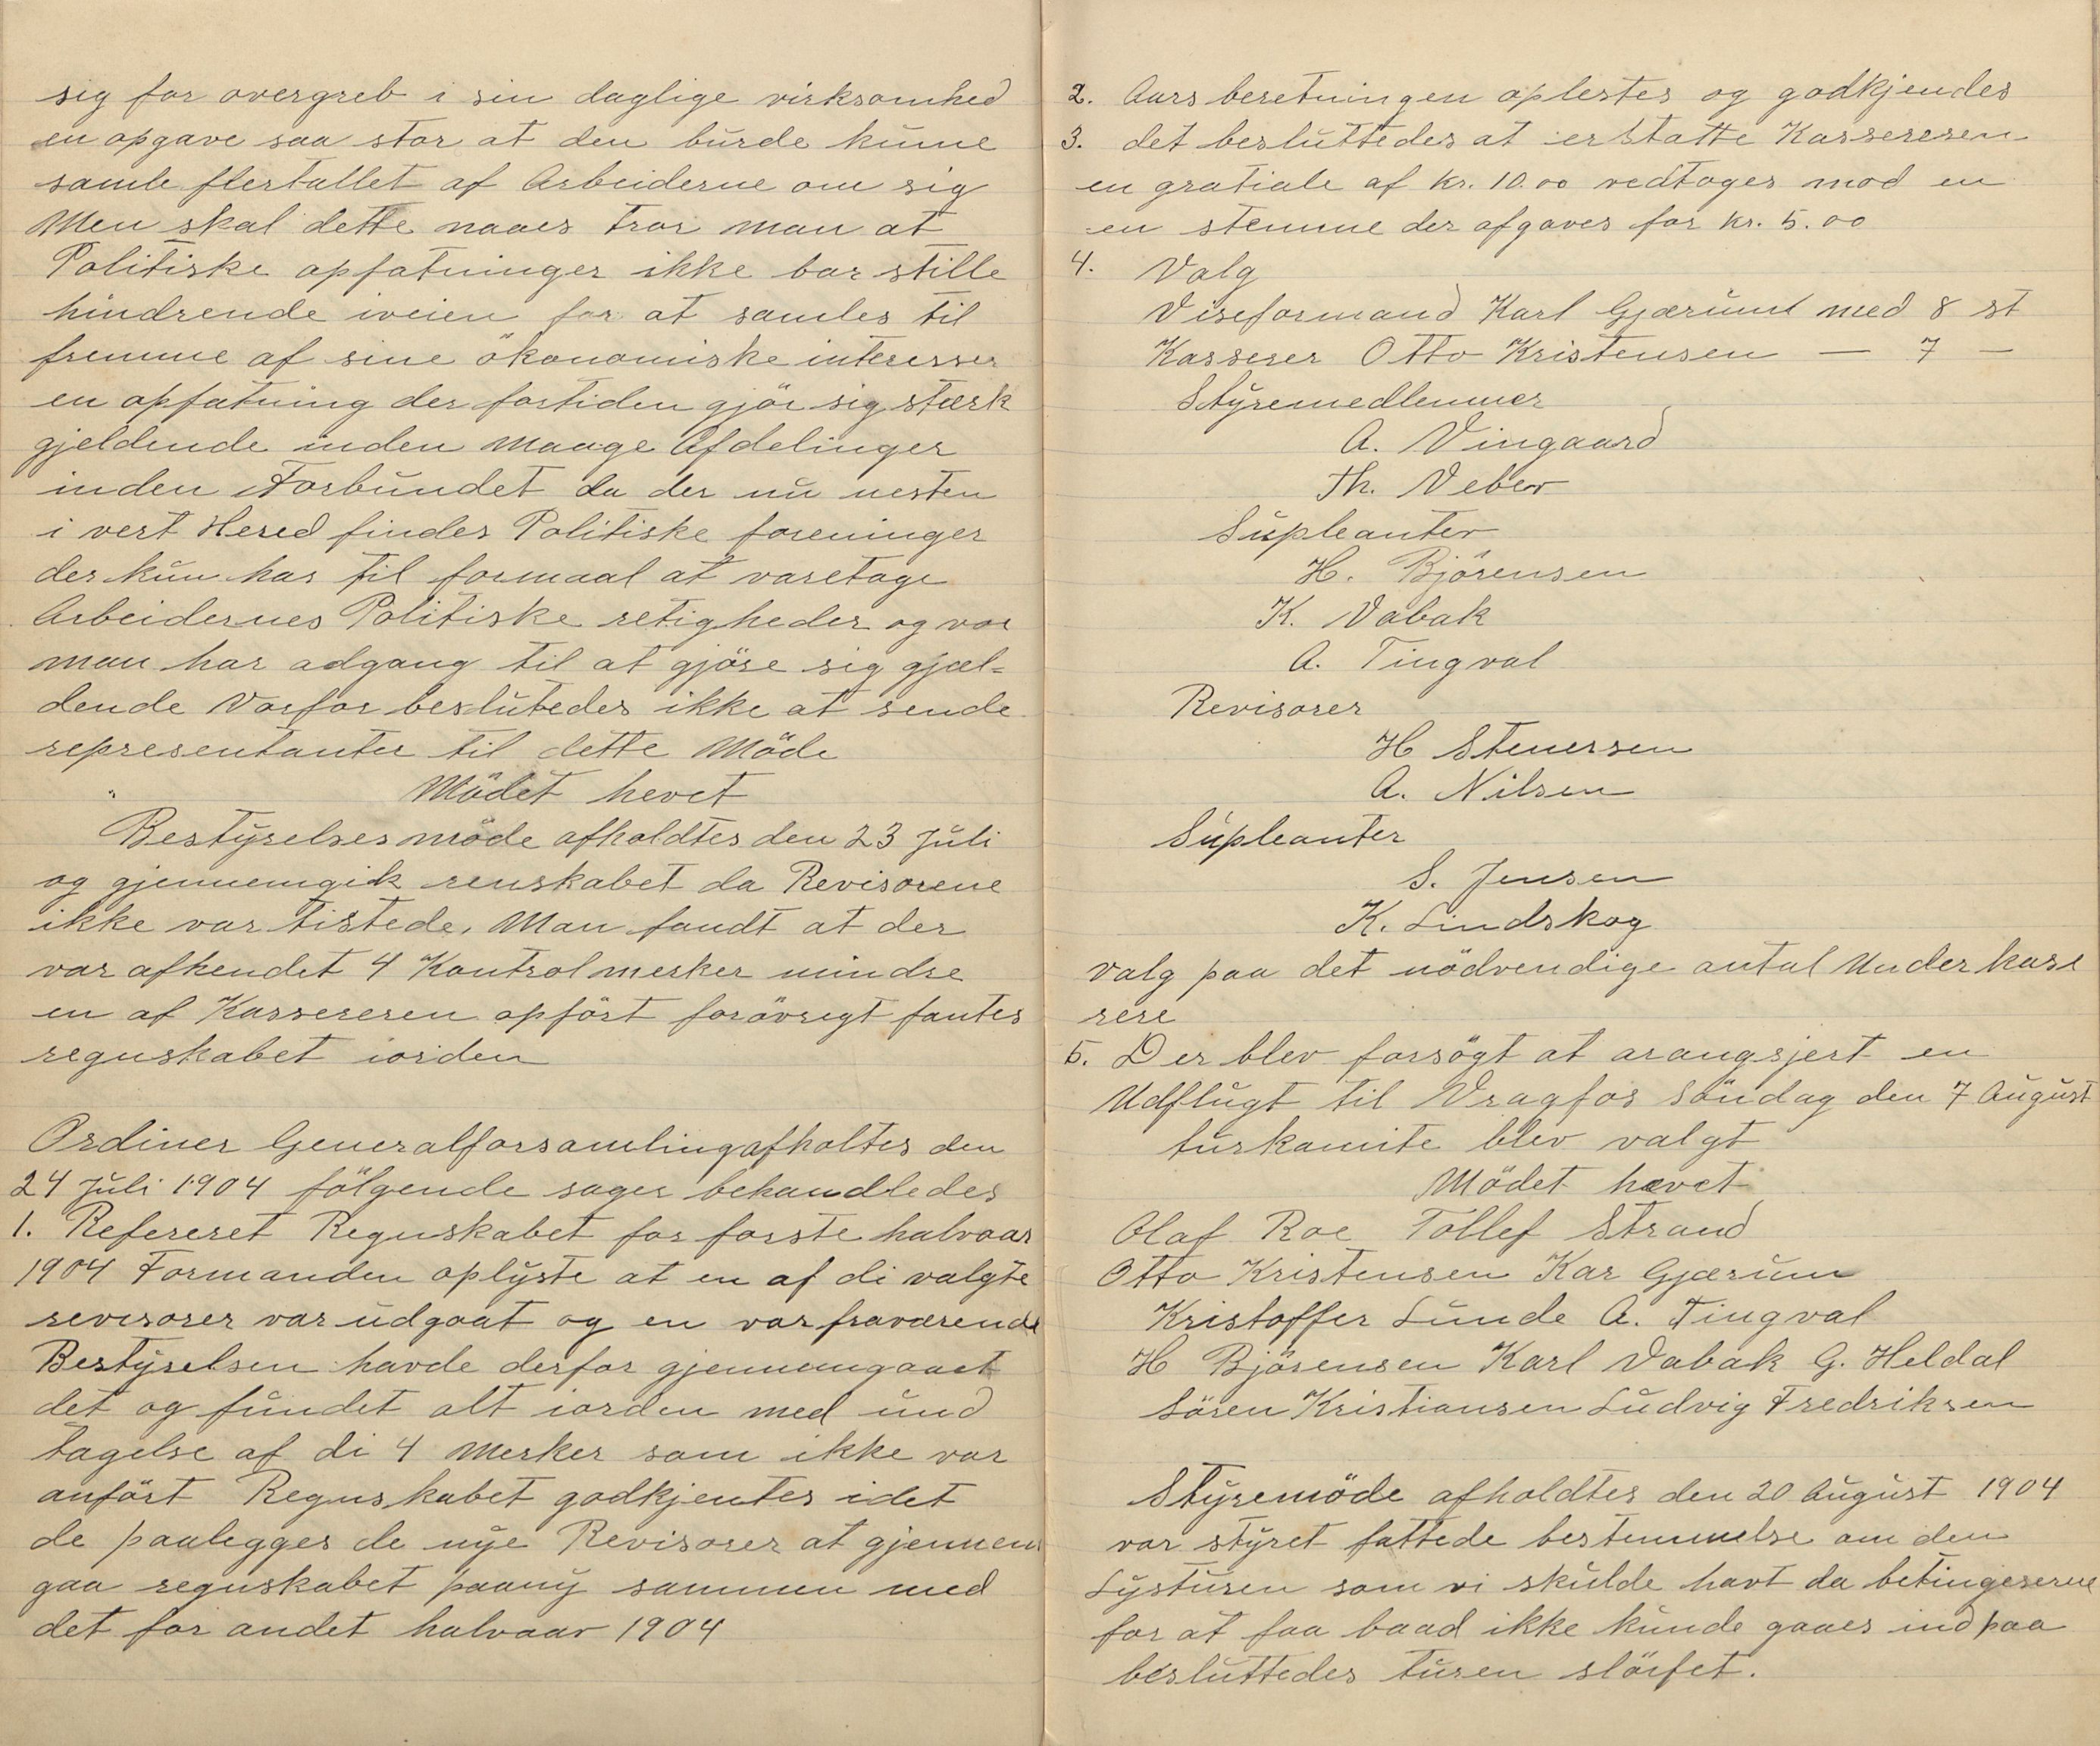 sig for overgreb i sin daglige virksomhed
en opgave saa stor at den burde kunne
samle flertallet af Arbeiderne om sig
Men skal dette naaes tror man at
Politiske opfatninger ikke bor stille
hindrende iveien for at samles til
fremme af sine ökonomiske interesser
en opfatning der fortiden gjör sig stærk
gjeldende inden Mange Afdelinger
inden Forbundet da der nu nesten
i vert Hered findes Politiske foreninger
der kun har til formaal at varetage
Arbeidernes Politiske retigheder og vor
man har adgang til at gjöre sig gjæl-
dende Vorfor beslutedes ikke at sende
representanter til dette Möde
Mödet hevet
Bestyrelsesmöde afholdtes den 23 Juli
og gjennemgik renskabet da Revisorene
ikke var tistede. Man fandt at der
var afhendet 4 Kontrolmerker mindre
en af Kassereren opfört forövregt fantes
regnskabet iorden
Ordiner Generalforsamling afholtes den
24 Juli 1904 fölgende sager behandledes
1. Refereret Regnskabet for forste halvaar
1904 Formanden oplyste at en af di valgte
revisorer var udgaat og en var fraværende
Bestyrelsen havde derfor gjennemgaaet
det og fundet alt iorden med und
tagelse af di 4 Merker som ikke var
anfört Regnskabet godkjentes idet
de paalegges de nye Revisorer at gjennem
gaa regnskabet paany sammen med
det for andet halvaar 1904
2. Aarsberetningen oplestes og godkjendes
3. det besluttedes at erstatte Kassereren
en gratiale af kr. 10.00 vedtoges mod en
en stemme der afgaves for kr. 5.00
4. Valg
Viseformand Karl Gjærum med 8 st
Kasserer Otto Kristensen — 7 —
Styremedlemmer
A. Vingaard
Th. Veber
Supleanter
H. Björensen
K. Vabak
A. Tingval
Revisorer
H Stenersen
A. Nilsen
Supleanter
S. Jensen
K. Lindskog
valg paa det nödvendige antal Underkass
rere
5. Der blev forsögt at arangsjert en
Udflugt til Vragfos Söndag den 7 August
turkomite blev valgt
Mödet hævet
Olaf Roe Tollef Strand
Otto Kristensen Kar Gjærum
Kristoffer Lunde A. Tingval
H Björensen Karl Vabak G. Heldal
Sören Kristiansen Ludvig Fredriksen
Styremöde afholdtes den 20 August 1904
vor styret fattede bestemmelse om den
Lysturen som vi skulde havt da betingeserene
for at faa baad ikke kunde gaaes ind paa
besluttedes turen slöifet.